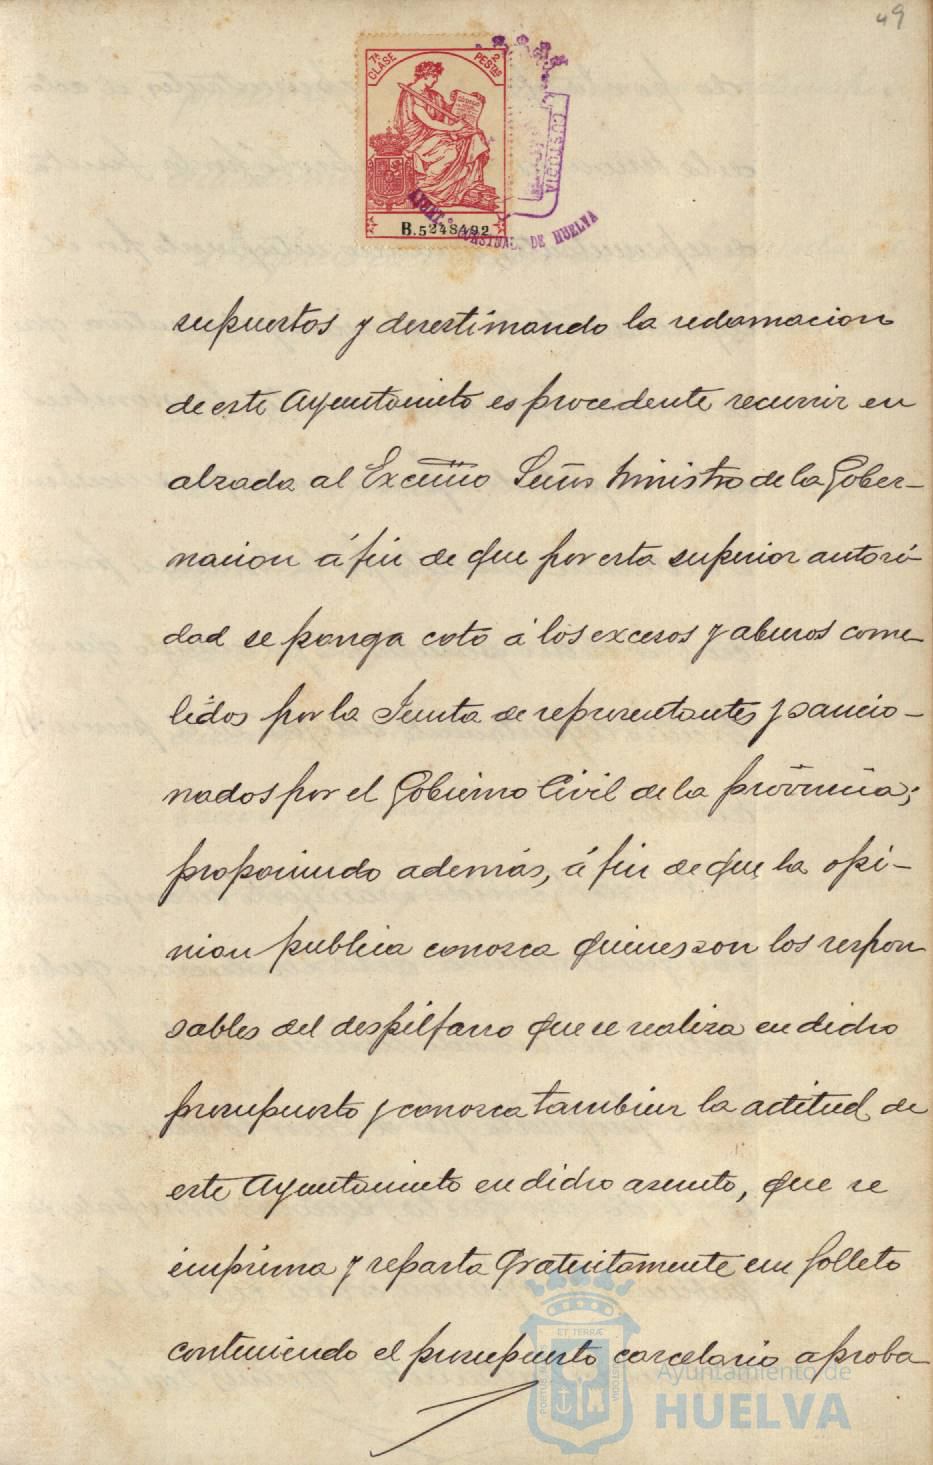 49
7ª CLASE 2 PESTAS
B.5248492
CUSTODIA
AYUNT.º CONSTNAL. DE HUELVA
supuestos y desestimando la reclamacion
de este Ayuntamieto es procedente recurrir en
alzada al Excmo Señor Ministro de la Gober-
nacion á fin de que por esta superior autori-
dad se ponga coto á los excesos y abusos come-
tidos por la Junta de representantes y sancio-
nados por el Gobierno Civil de la provincia;
proponiendo además, á fin de que la opi-
nion publica conozca quienes son los respon
sables del despilfarro que se realiza en dicho
presupuesto y conozca tambien la actitud de
este Ayuntamieto en dicho asunto, que se
imprima y reparta gratuitamente un folleto
conteniendo el presupuesto carcelario aproba
ET TERRÆ
PORTUS MARIS
CUSTODIA
Ayuntamiento de
HUELVA